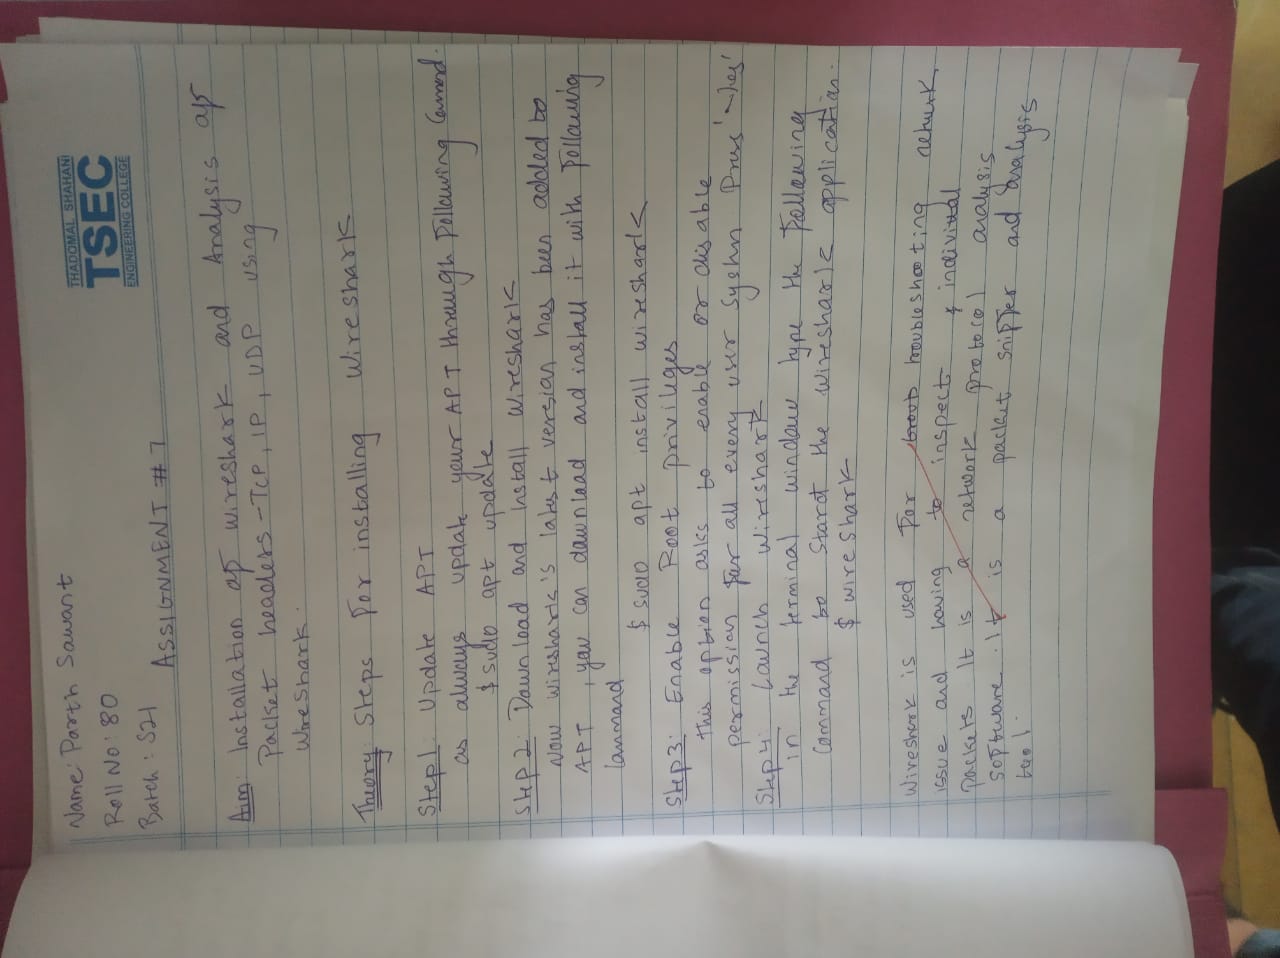 THADOMAL SHAHANI
TSEC
ENGINEERING COLLEGE
Name: Parth Sawant
Roll No: 80
Batch: S21
ASSIGNMENT # 7
Aim: Installation of wireshark and Analysis of
Packet headers - TCP, IP, UDP using
wireshark.
Theory: Steps for installing Wireshark
Step1: Update APT
as always update your APT through following Command.
$ sudo apt update
Step 2: Download and install Wireshark
Now wireshark's latest version has been added to
APT, you can download and install it with following
Command
$ sudo apt install wireshark
Step 3: Enable Root privileges
this option asks to enable or disable
permission for all every user System Press 'Yes'
Step 4: Launch Wireshark
in the terminal window type the following
Command to start the wireshark application.
$ wireshark
Wireshark is used for troub troubleshooting network
issue and having to inspect & individual
packets It is a network protocol analysis
software. It is a packet sniffer and analysis
tool.